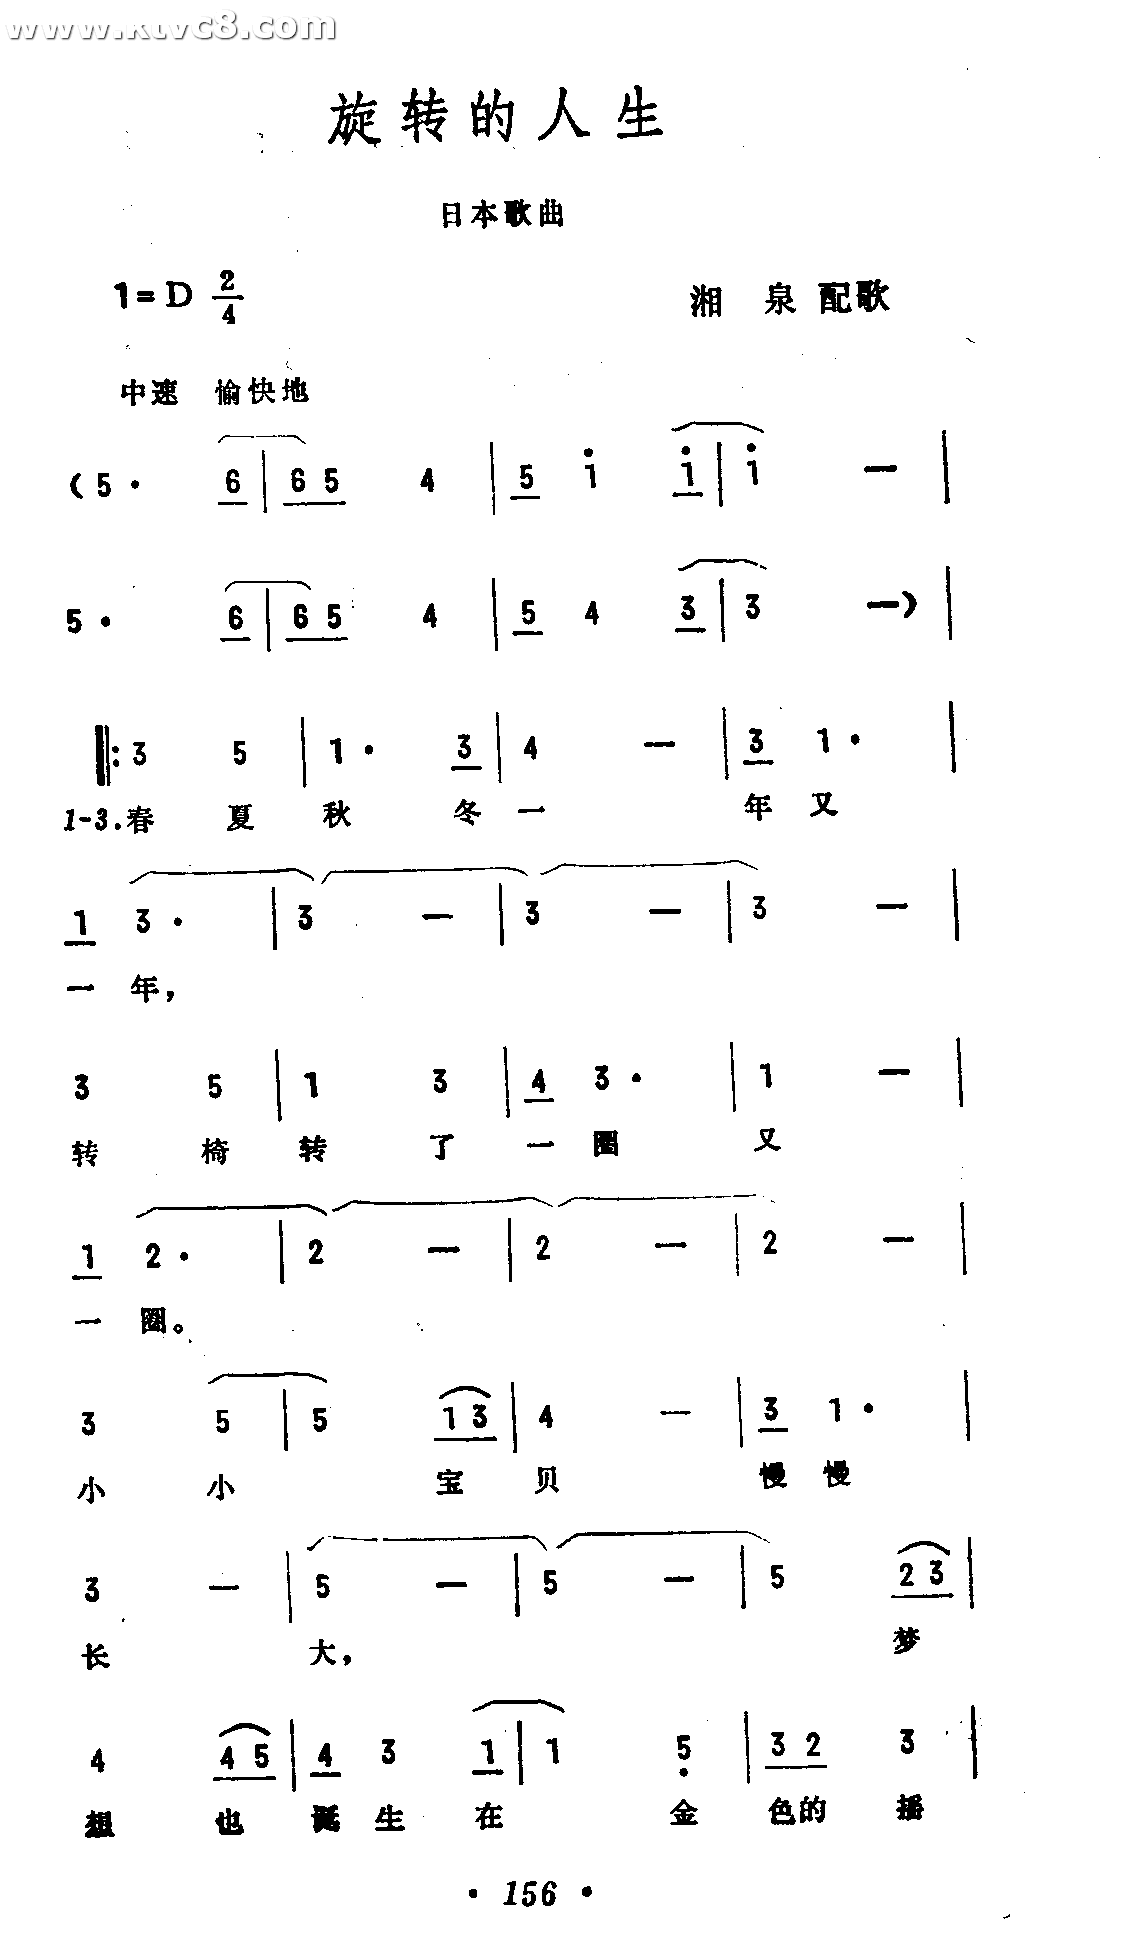 www.ktvc8.com
旋转的人生
日本歌曲
1=D 2/4
湘 泉 配歌
中速 愉快地
(5· 6 | 6 5 4 | 5 i i | i — |
5· 6 | 6 5 4 | 5 4 3 | 3 —) |
‖: 3 5 | 1· 3 | 4 — | 3 1· |
1-3.春 夏 秋 冬 一 年 又
1 3· | 3 — | 3 — | 3 — |
一 年,
3 5 | 1 3 | 4 3· | 1 — |
转 椅 转 了 一 圈 又
1 2· | 2 — | 2 — | 2 — |
一 圈。
3 5 | 5 1 3 | 4 — | 3 1· |
小 小 宝 贝 慢 慢
3 — | 5 — | 5 — | 5 2 3 |
长 大, 梦
4 4 5 | 4 3 1 | 1 5̣ | 3 2 3 |
想 也 诞 生 在 金 色的 摇
· 156 ·